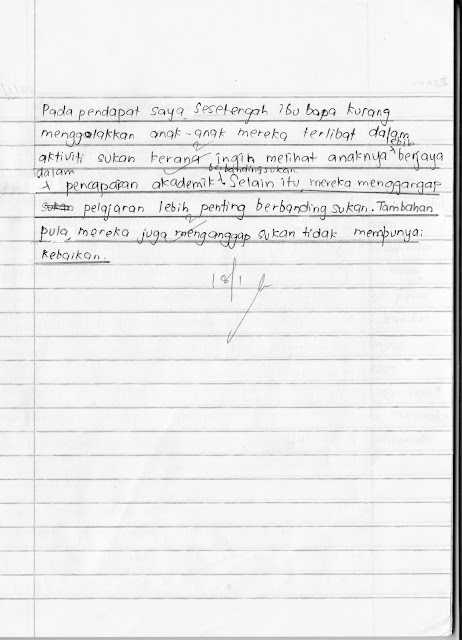 Pada pendapat saya sesetengah ibu bapa kurang
menggalakkan anak-anak mereka terlibat dalam
lebih
aktiviti sukan kerana ingin melihat anaknya berjaya
dalam
berbanding sukan.
pencapaian akademik. Selain itu, mereka menggangap
sukan pelajaran lebih penting berbanding sukan. Tambahan
pula, mereka juga menganggap sukan tidak mempunyai
kebaikan.
18/1